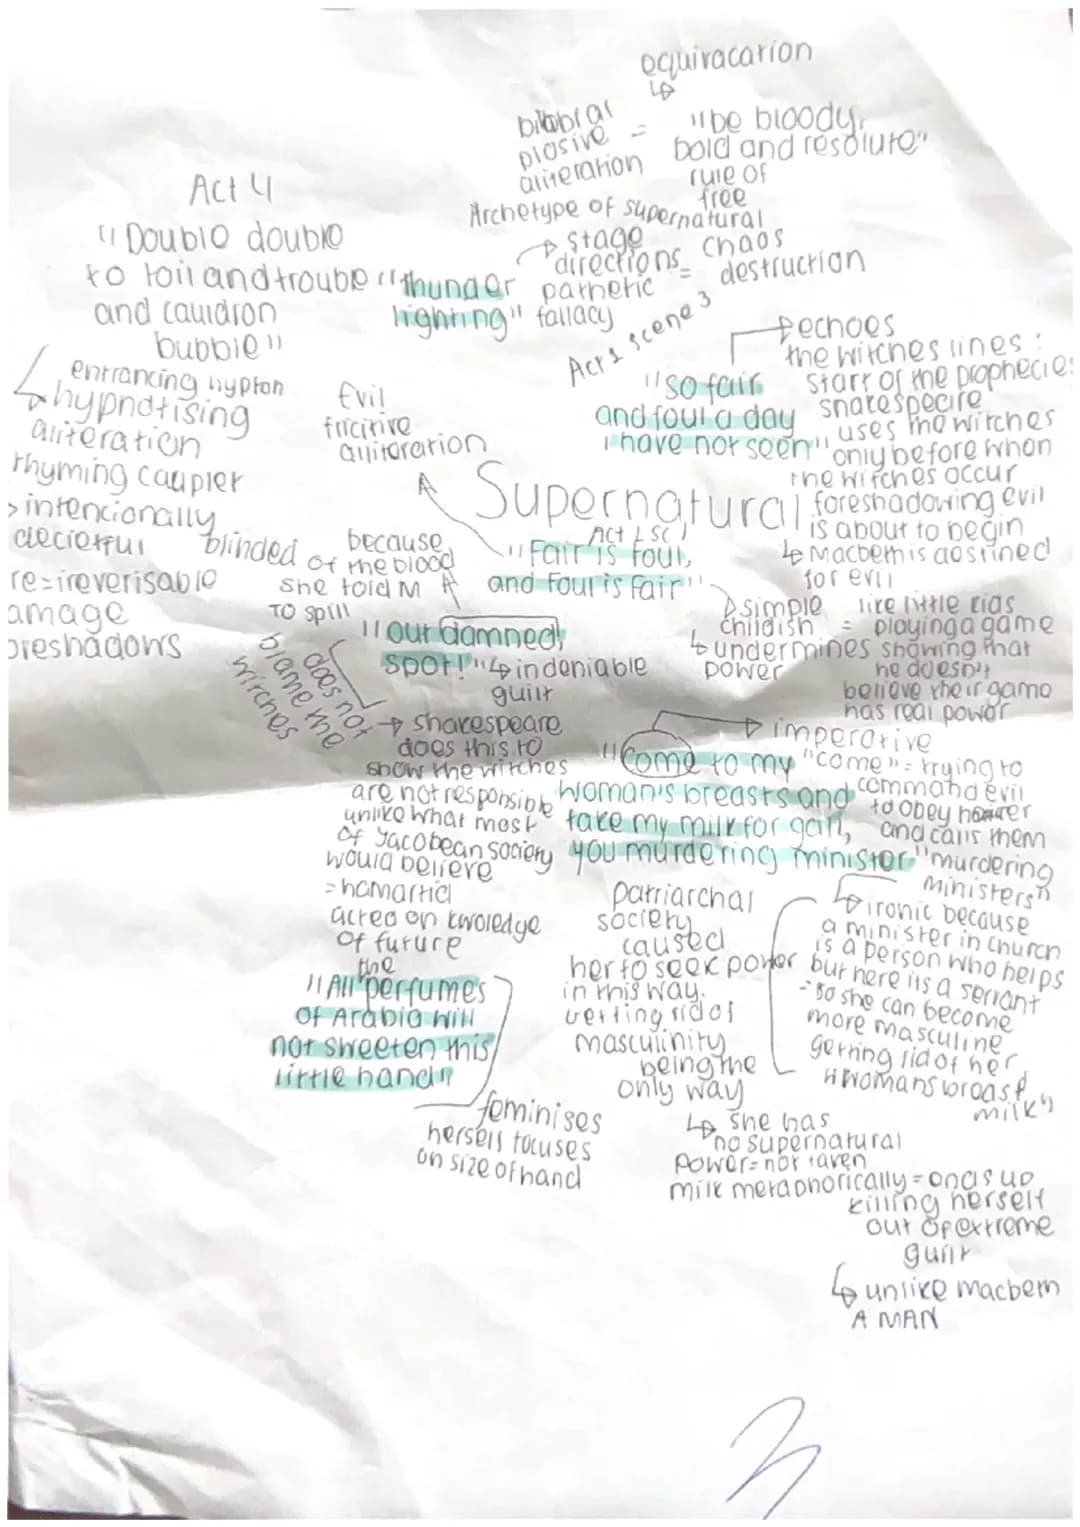 equivacation
bilabial
plosive =
aliteration
"be bloody,
bold and resolute"
rule of
free
Archetype of supernatural
stage
directions =
pathetic
fallacy
chaos
destruction
"thunder
lighting"
Act 4
"Double double
to toil and trouble
and cauldron
bubble"
entrancing hypton
hypnotising
aliteration
rhyming couplet
intencionally
decietful
re=ireverisable
amage
oreshadows
Evil
fricitive
alliteration
Act 1 scene 3
"so fair
and foul a day
I have not seen"
echoes
the witches lines :
start of the prophecies
shakespeare
uses the witches
only before when
the witches occur
foreshadowing evil
is about to begin
Macbeth is destined
for evil
Supernatural
Act 1 sc 1
"Fair is foul,
and foul is fair"
simple
childish =
like little kids
playing a game
undermines
power
showing that
he doesn't
believe their game
has real power
blinded
because
of the blood
she told M
TO spill
"out damned,
spot!"
indeniable
guilt
does not
blame the
witches
shakespeare
does this to
show the witches
are not responsible
unlike what most
of Jacobean society
would believe
= hamartia
acted on kwoledge
of future
"Come to my
woman's breasts and
take my milk for gall,
you murdering minister"
imperative
"come" = trying to
command evil
to obey her
and calls them
"murdering
ministers"
ironic because
a minister in church
is a person who helps
but here its a servant
= so she can become
more masculine
getting rid of her
"womans breast
milk"
patriarchal
society
caused
her to seek power
in this way.
getting rid of
masculinity
being the
only way
she has
no supernatural
power = not taken
milk metaphorically = ends up
killing herself
out of extreme
guilt
unlike macbeth
A MAN
the
"All perfumes
of Arabia will
not sweeten this
little hand"
feminises
herself focuses
on size of hand